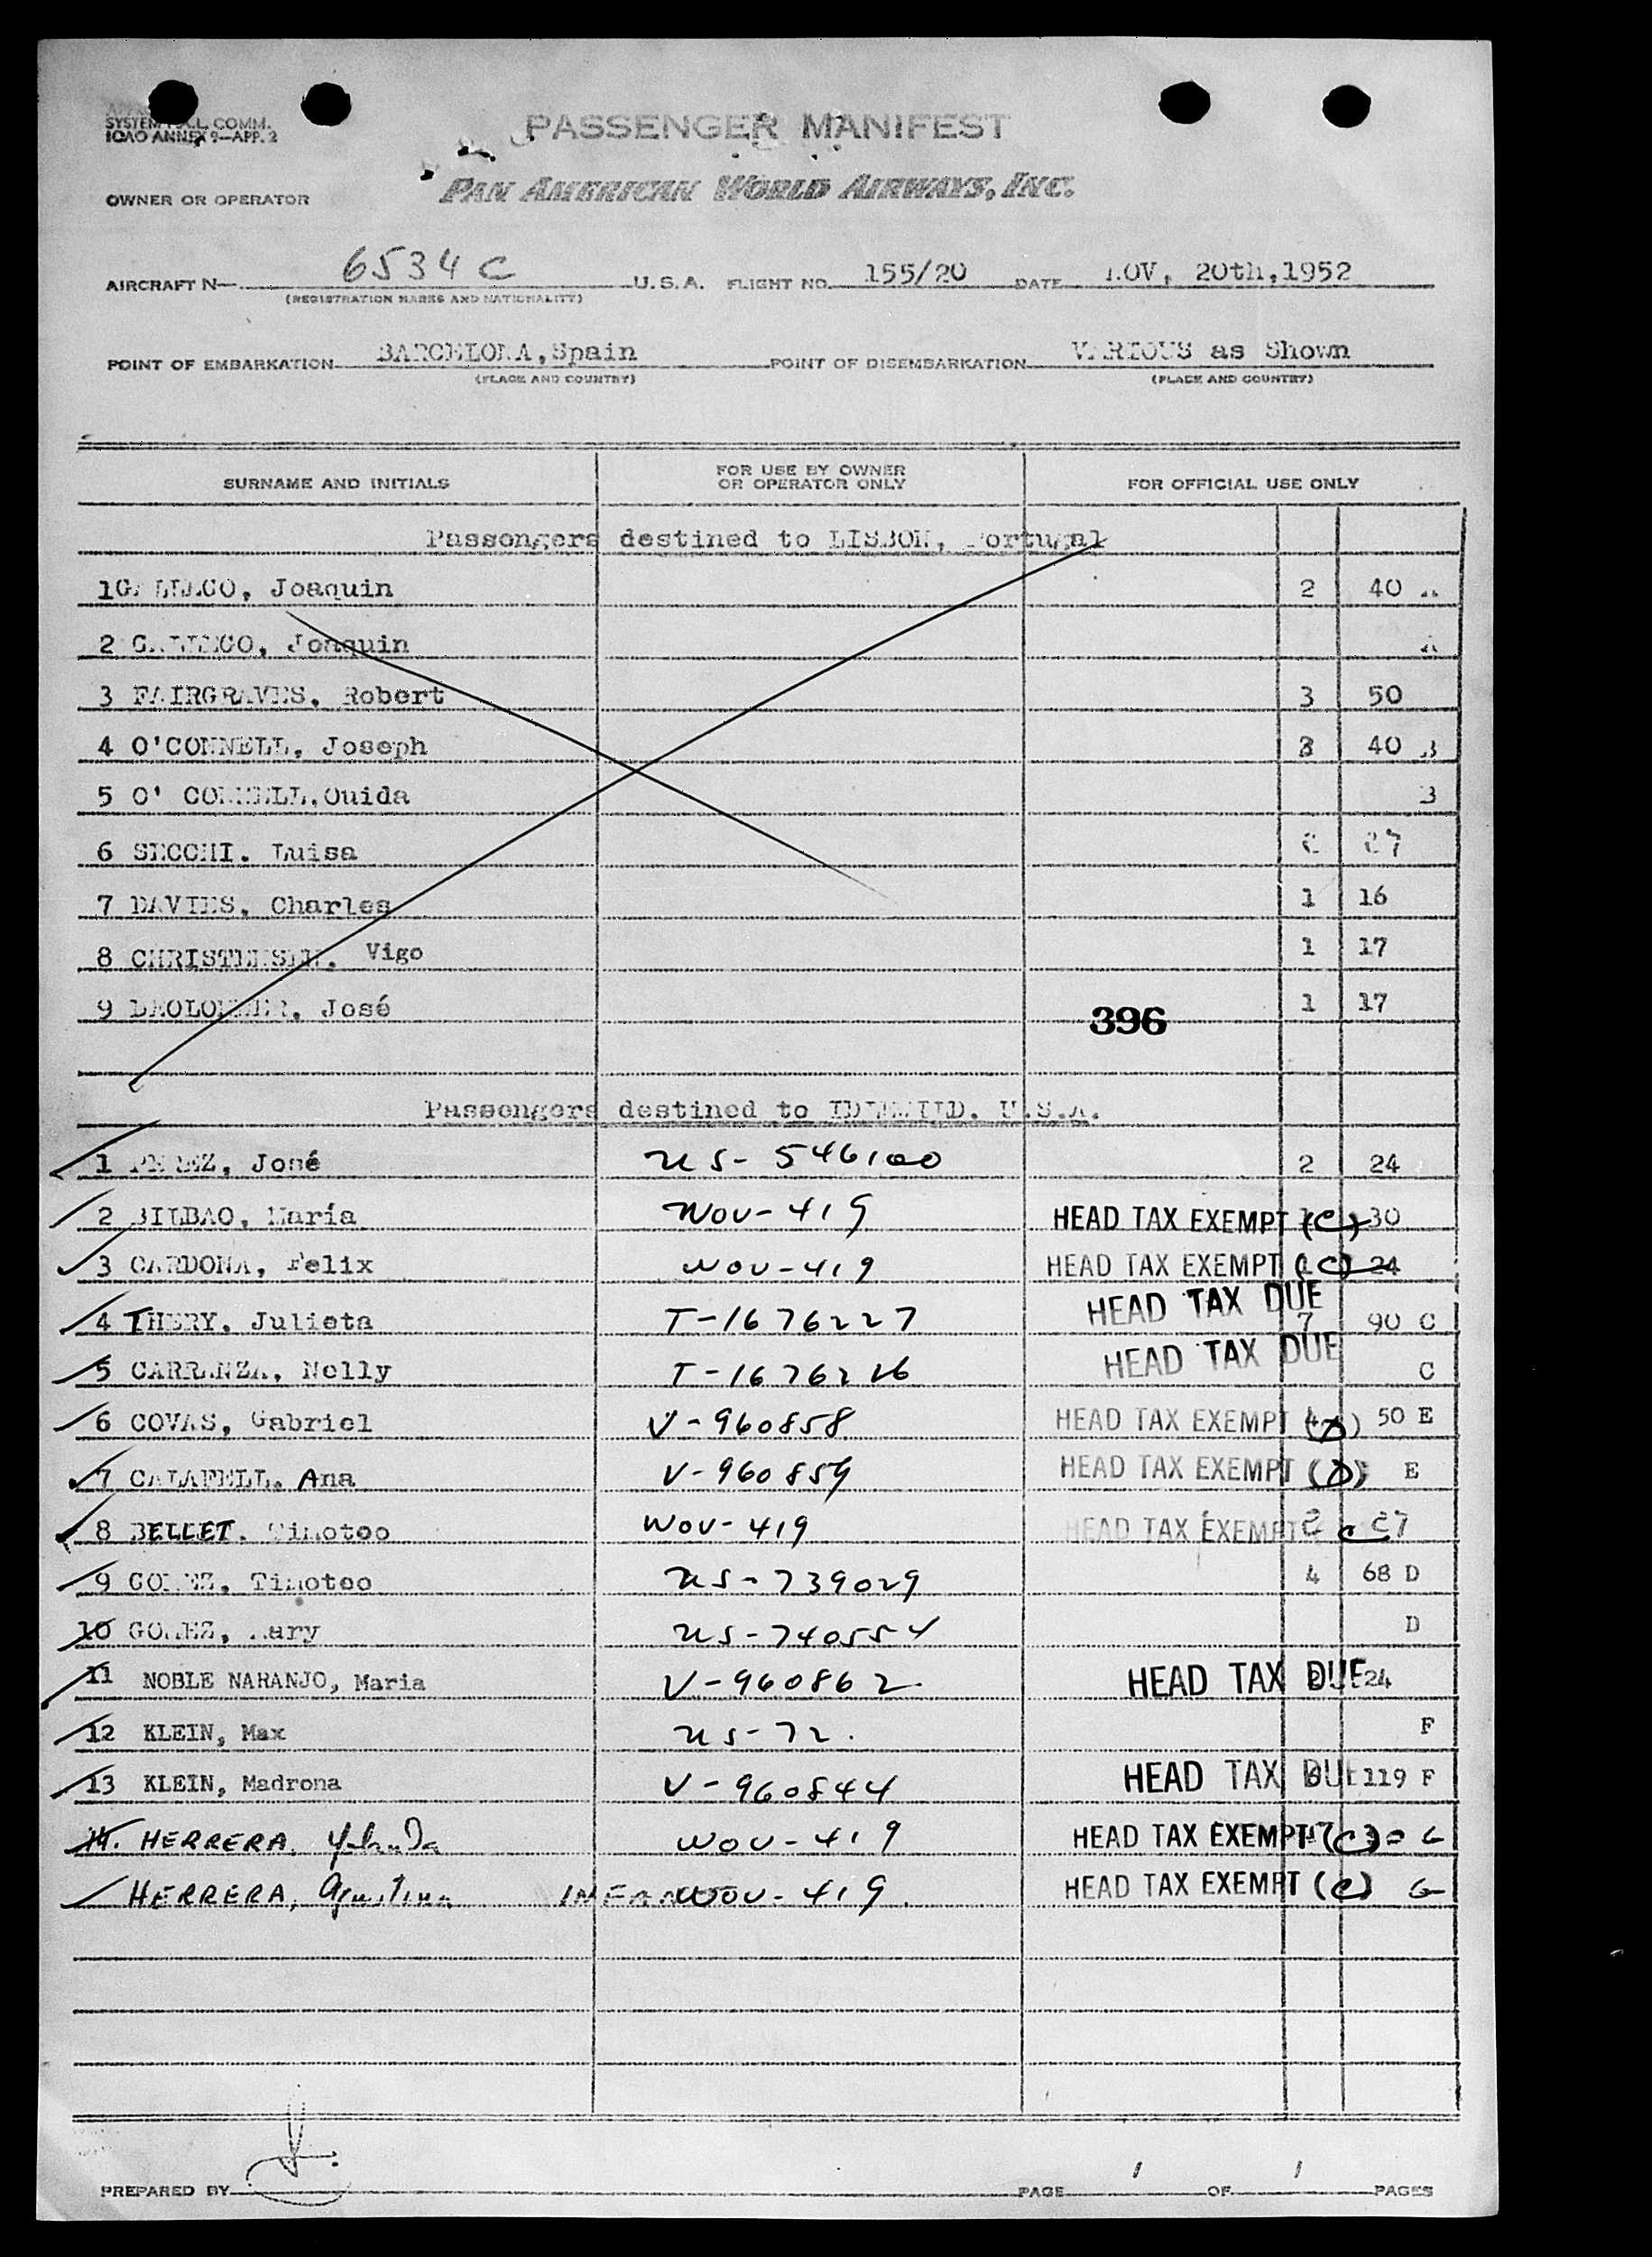 SYSTEM COMM.
ICAO ANNEX 9—APP. 2
PASSENGER MANIFEST
OWNER OR OPERATOR
PAN AMERICAN WORLD AIRWAYS, INC.
AIRCRAFT N— 6534 C U.S.A. FLIGHT NO. 155/20 DATE NOV, 20th,1952
(REGISTRATION MARKS AND NATIONALITY)
POINT OF EMBARKATION BARCELONA,Spain POINT OF DISEMBARKATION VARIOUS as Shown
(PLACE AND COUNTRY) (PLACE AND COUNTRY)
SURNAME AND INITIALS FOR USE BY OWNER OR OPERATOR ONLY FOR OFFICIAL USE ONLY
Passengers destined to LISBON, Portugal
1 GALLEGO, Joaquin 2 40 A
2 GALLEGO, Joaquin A
3 FAIRGRAVES, Robert 3 50
4 O'CONNELL, Joseph 3 40 B
5 O' CONNELL,Ouida B
6 SECCHI. Luisa 2 27
7 DAVIES, Charles 1 16
8 CHRISTENSEN, Vigo 1 17
9 José 1 17
396
Passengers destined to IDLEWILD. U.S.A.
1 PEREZ, José US- 546100 2 24
2 BILBAO, María NOU-419 HEAD TAX EXEMPT (C) 30
3 CARDONA, Felix NOU-419 HEAD TAX EXEMPT (C) 24
4 THERY, Julieta T-1676227 HEAD TAX DUE 7 90 C
5 CARRANZA, Nelly T-1676226 HEAD TAX DUE C
6 COVAS, Gabriel V-960858 HEAD TAX EXEMPT 4 50 E
7 CALAFELL. Ana V-960859 HEAD TAX EXEMPT E
8 BELLET. Timoteo NOU-419 HEAD TAX EXEMPT 2 C 27
9 GOMEZ, Timoteo US-739029 4 68 D
10 GOMEZ, Mary US-740554 D
11 NOBLE NARANJO, Maria V-960862 HEAD TAX DUE 24
12 KLEIN, Max US-72. F
13 KLEIN, Madrona V-960844 HEAD TAX DUE 119 F
14. HERRERA, Yolanda NOU-419 HEAD TAX EXEMPT (C) G
HERRERA, INFANT NOU-419 HEAD TAX EXEMPT (C) G
PREPARED BY PAGE 1 OF 1 PAGES